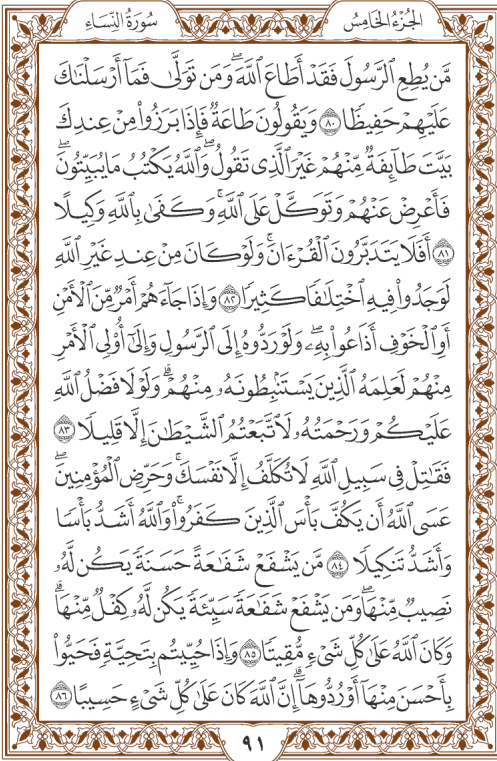 الجزء الخامس
سورة النساء
مَّن يُطِعِ ٱلرَّسُولَ فَقَدْ أَطَاعَ ٱللَّهَۖ وَمَن تَوَلَّىٰ فَمَآ أَرْسَلْنَٰكَ
عَلَيْهِمْ حَفِيظًا ٨٠ وَيَقُولُونَ طَاعَةٌ فَإِذَا بَرَزُوا۟ مِنْ عِندِكَ
بَيَّتَ طَآئِفَةٌ مِّنْهُمْ غَيْرَ ٱلَّذِى تَقُولُۖ وَٱللَّهُ يَكْتُبُ مَا يُبَيِّتُونَۖ
فَأَعْرِضْ عَنْهُمْ وَتَوَكَّلْ عَلَى ٱللَّهِۚ وَكَفَىٰ بِٱللَّهِ وَكِيلًا
٨١ أَفَلَا يَتَدَبَّرُونَ ٱلْقُرْءَانَۚ وَلَوْ كَانَ مِنْ عِندِ غَيْرِ ٱللَّهِ
لَوَجَدُوا۟ فِيهِ ٱخْتِلَٰفًا كَثِيرًا ٨٢ وَإِذَا جَآءَهُمْ أَمْرٌ مِّنَ ٱلْأَمْنِ
أَوِ ٱلْخَوْفِ أَذَاعُوا۟ بِهِۦۖ وَلَوْ رَدُّوهُ إِلَى ٱلرَّسُولِ وَإِلَىٰٓ أُو۟لِى ٱلْأَمْرِ
مِنْهُمْ لَعَلِمَهُ ٱلَّذِينَ يَسْتَنۢبِطُونَهُۥ مِنْهُمْۗ وَلَوْلَا فَضْلُ ٱللَّهِ
عَلَيْكُمْ وَرَحْمَتُهُۥ لَٱتَّبَعْتُمُ ٱلشَّيْطَٰنَ إِلَّا قَلِيلًا ٨٣
فَقَٰتِلْ فِى سَبِيلِ ٱللَّهِ لَا تُكَلَّفُ إِلَّا نَفْسَكَۚ وَحَرِّضِ ٱلْمُؤْمِنِينَۖ
عَسَى ٱللَّهُ أَن يَكُفَّ بَأْسَ ٱلَّذِينَ كَفَرُوا۟ۚ وَٱللَّهُ أَشَدُّ بَأْسًا
وَأَشَدُّ تَنكِيلًا ٨٤ مَّن يَشْفَعْ شَفَٰعَةً حَسَنَةً يَكُن لَّهُۥ
نَصِيبٌ مِّنْهَاۖ وَمَن يَشْفَعْ شَفَٰعَةً سَيِّئَةً يَكُن لَّهُۥ كِفْلٌ مِّنْهَاۗ
وَكَانَ ٱللَّهُ عَلَىٰ كُلِّ شَىْءٍ مُّقِيتًا ٨٥ وَإِذَا حُيِّيتُم بِتَحِيَّةٍ فَحَيُّوا۟
بِأَحْسَنَ مِنْهَآ أَوْ رُدُّوهَآۗ إِنَّ ٱللَّهَ كَانَ عَلَىٰ كُلِّ شَىْءٍ حَسِيبًا ٨٦
٩١